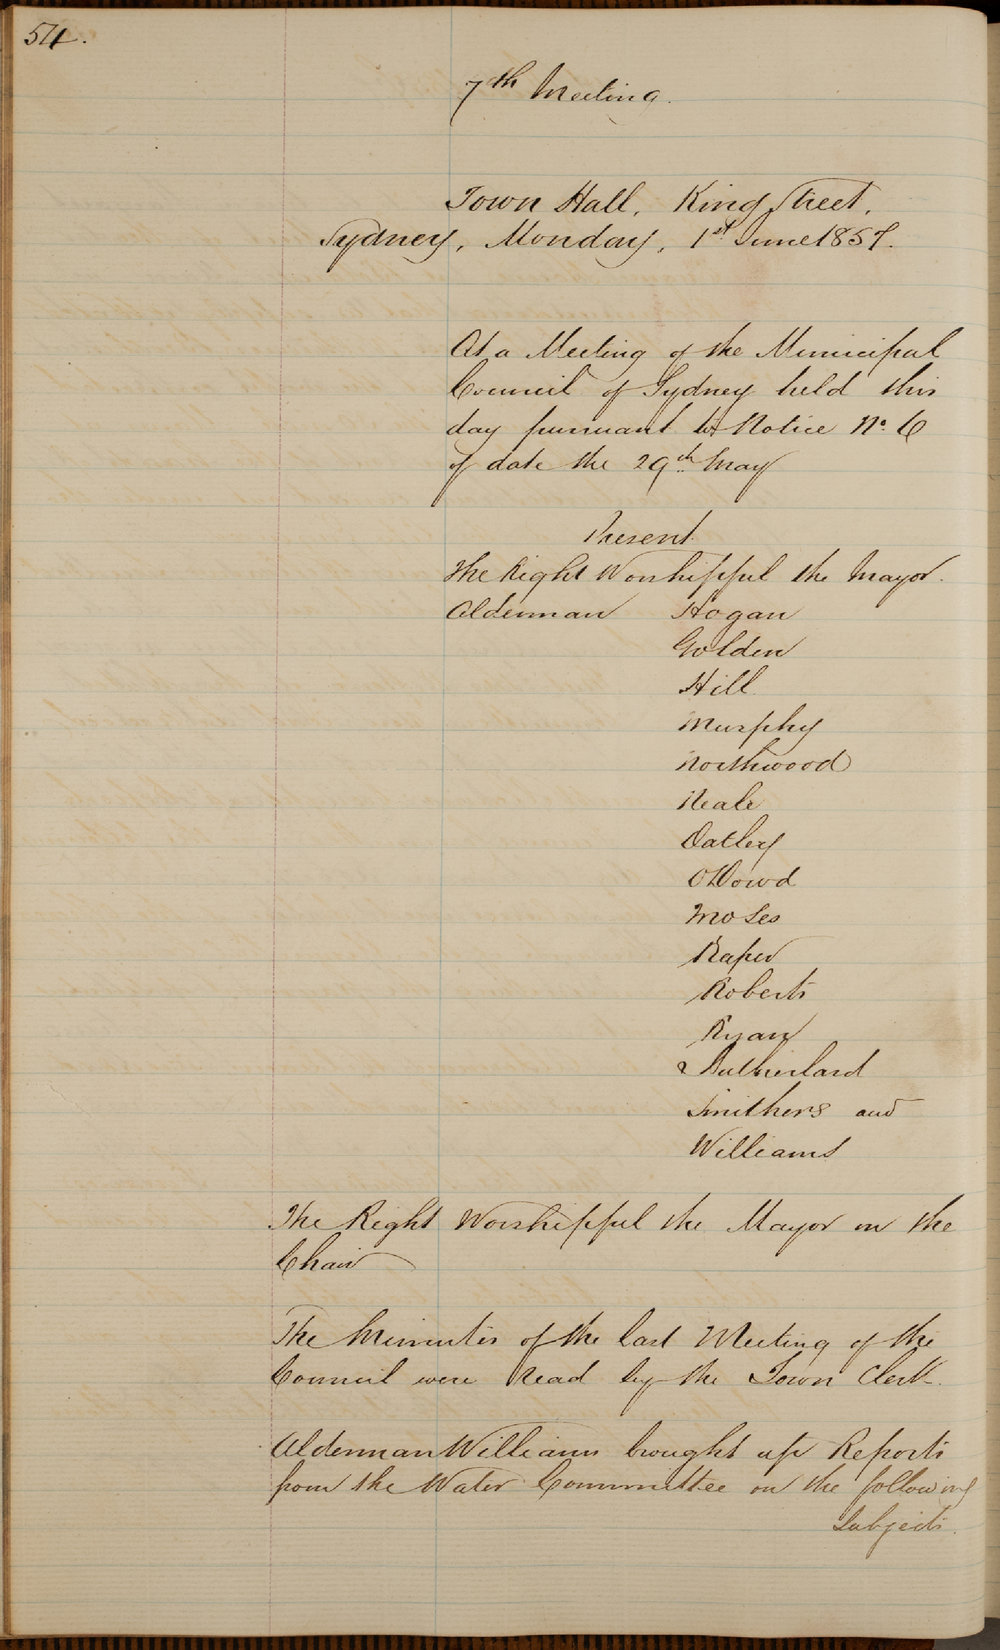 54.
7th Meeting.
Town Hall, King Street,
Sydney, Monday, 1st June 1857.
At a Meeting of the Municipal
Council of Sydney held this
day pursuant to Notice No. 6
of date the 29th May
Present
The Right Worshipful the Mayor.
Alderman Hogan
Golden
Hill
Murphy
Northwood
Neale
Oatley
O'Dowd
Moses
Raper
Roberts
Ryan
Sutherland
Smithers and
Williams
The Right Worshipful the Mayor in the
Chair
The Minutes of the last Meeting of the
Council were read by the Town Clerk.
Alderman Williams brought up Reports
from the Water Committee on the following
Subjects.